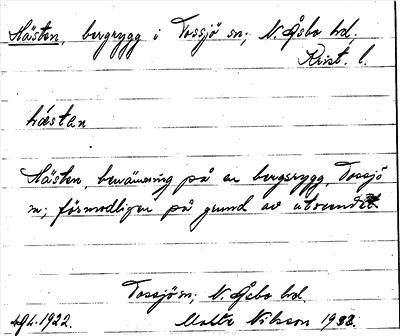 Hästen, bergrygg i Tossjö sn; N. Åsbo hd,
Krist. l.
hæstan
Hästen, benämning på en bergsrygg, Tossjö
sn; förmodligen på grund av utseendet
Tossjö sn; N. Åsbo hd
1922. Malte Nilsson 1938.